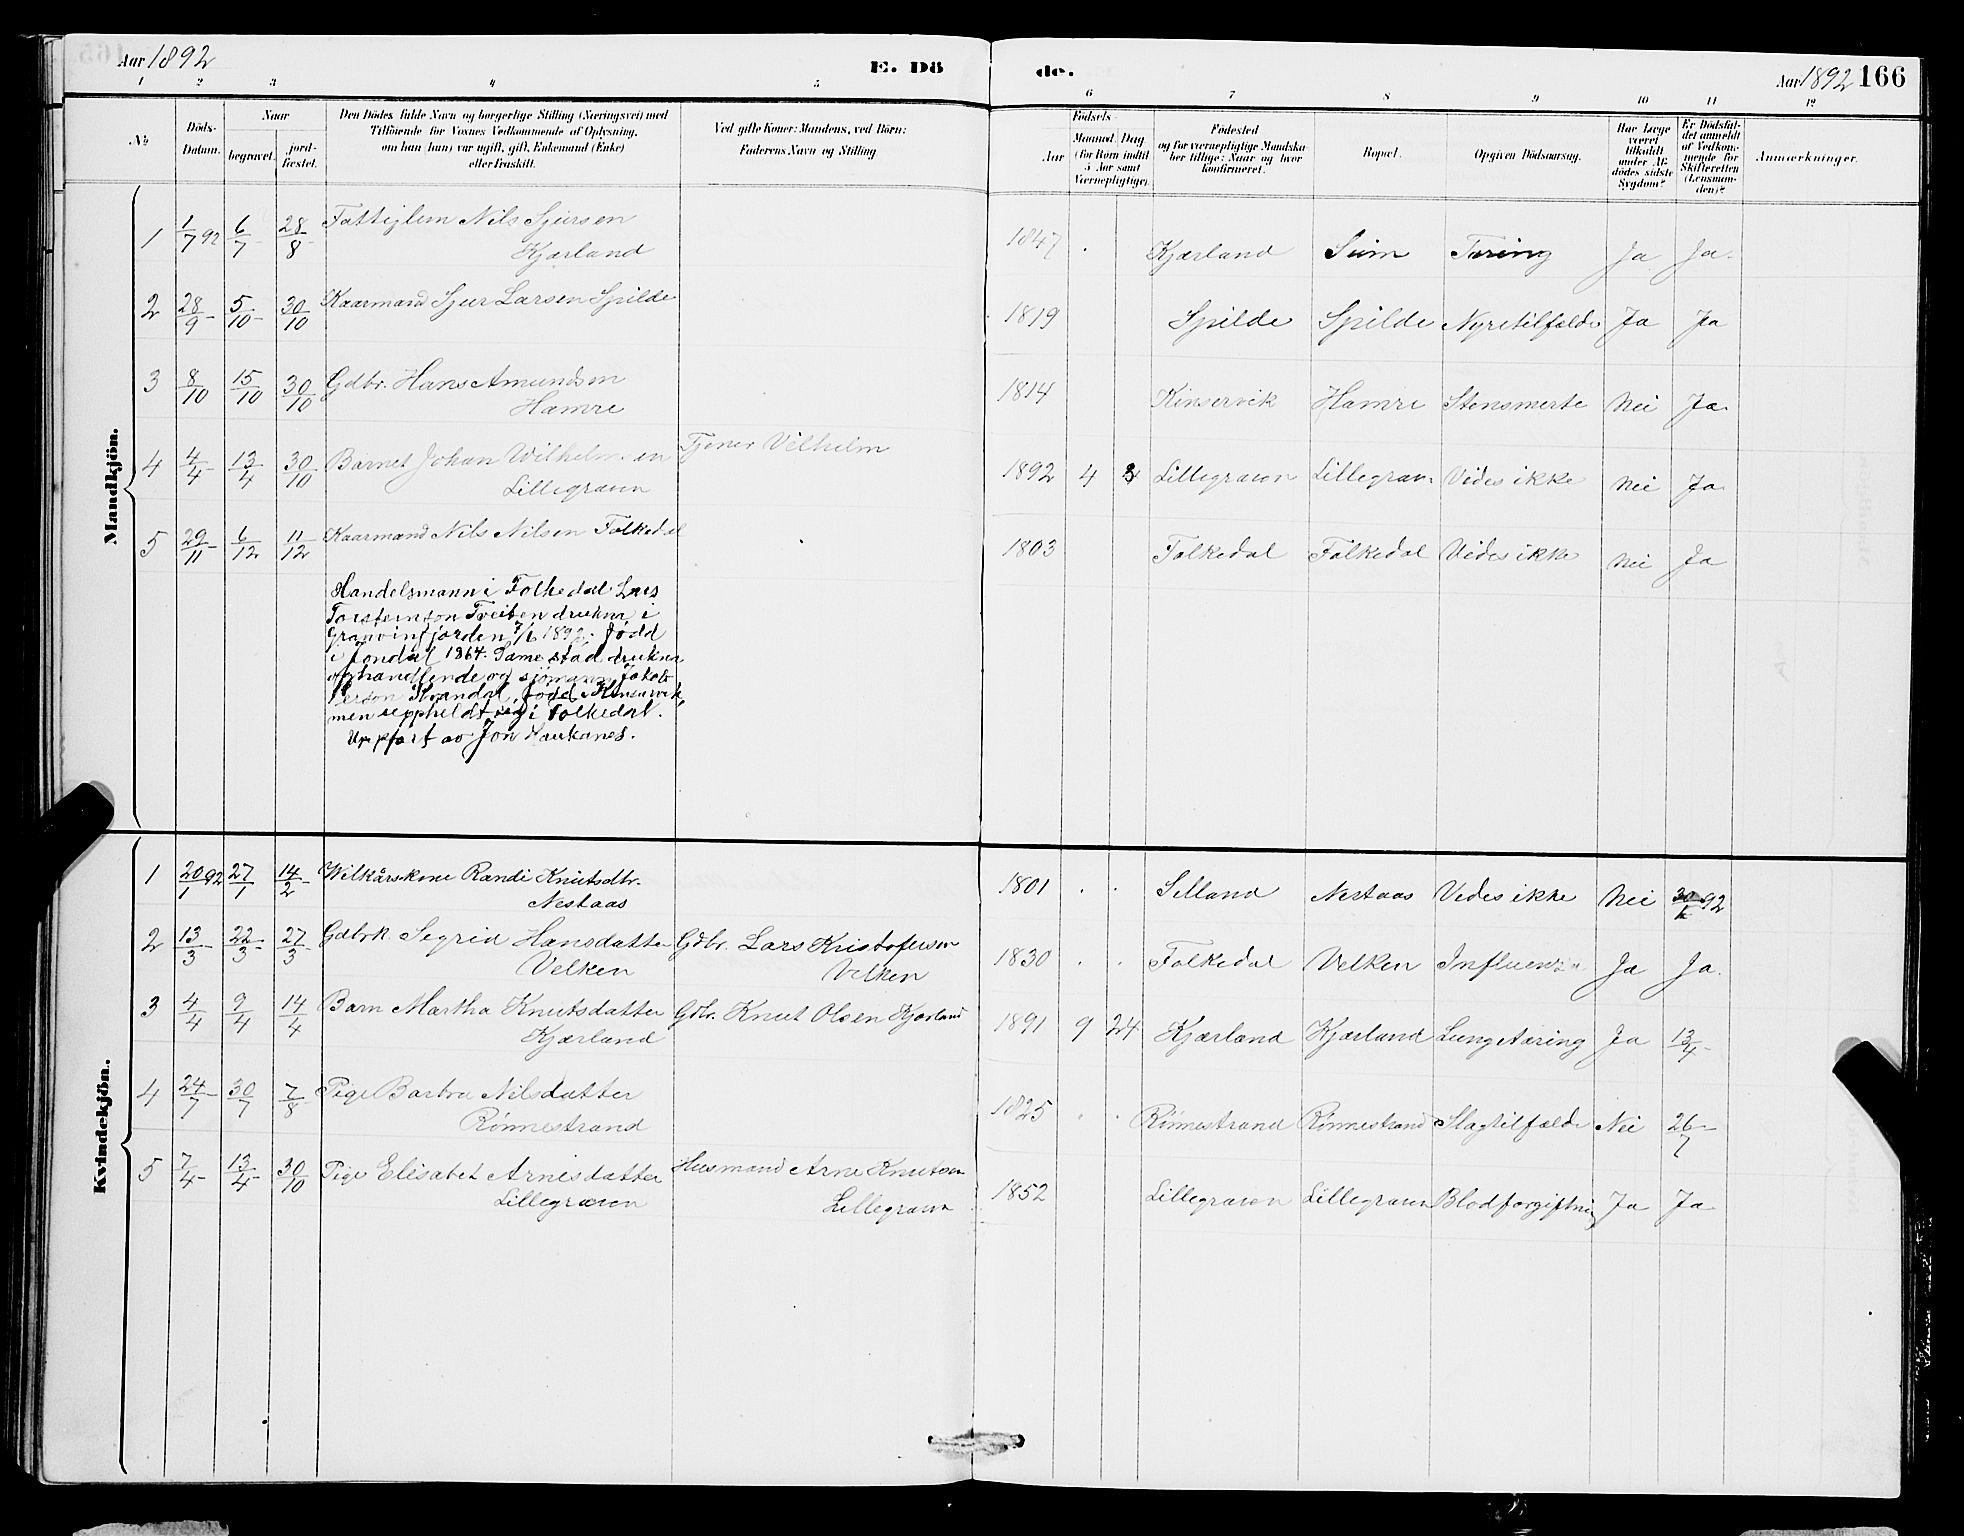 Aar 1892
E. Dö
de.
Aar 1892 166
1 2 3 4 5 6 7 8 9 10 11 12
No
Döds-
Datum.
Naar
begravet.
jord-
fæstet.
Den Dödes fulde Navn og borgerlige Stilling (Næringsvei) med
Tilföiende for Voxnes Vedkommende af Oplysning,
om han (hun) var ugift, gift, Enkemand (Enke)
eller fraskilt.
Ved gifte Koner: Mandens, ved Börn:
Faderens Navn og Stilling
Födsels-
Aar
Maaned. Dag
(for Börn indtil
5 Aar samt
Værnepligtige).
Födested
og for værnepligtige Mandska-
ber tillige: Naar og hvor
konfirmeret.
Bopæl.
Opgiven Dödsaarsag.
Har Læge
været
tilkaldt
under Af-
dödes sidste
Sygdom?
Er Dödsfal-
det anmeldt
af Vedkom-
mende for
Skifteretten
(Lensman-
den)?
Anmærkninger.
Mandkjön.
1 1/7 92 6/7 28/8 Fattiglem Nils Sjursen
Kjærland
1847 Kjærland Sum Tæring Ja Ja
2 28/9 5/10 30/10 Kaarmand Sjur Larsen Spilde
1819 Spilde Spilde Nyretilfælde Ja Ja
3 8/10 15/10 30/10 Gdbr. Hans Amundsen
Hamre
1814 Kinservik Hamre Stensmerte Nei Ja
4 4/4 13/4 30/10 Barnet Johan Wilhelmsen
Lillegraven
Tjener Vilhelm
1892 4 3 Lillegraven Lillegrav. Vides ikke Nei Ja
5 29/11 6/12 11/12 Kaarmand Nils Nilsen Folkedal
1803 Folkedal Folkedal Vides ikke Nei Ja
Handelsmann i Folkedal Lars
Torsteinson Tveiten drukna i
Granvinfjorden 7/6 1892. Född
i Jondal 1864. Same stad drukna
opphandlende og sjømann Jakob
Person Strandal, født i Kinservik,
men uppheldt seg i Folkedal.
Uppført av Jon Haukanes.
Kvindekjön.
1 20/1 92 27/1 14/2 Wilkårskone Randi Knutsdtr.
Nestaas
1801 Selland Nestaas Vides ikke Nei 92
2 13/3 22/3 27/3 Gdbrk. Segrid Hansdatter
Velken
Gdbr. Lars Kristofersen
Velken
1830 Folkedal Velken Influenza Ja Ja.
3 4/4 9/4 14/4 Barn Martha Knutsdatter
Kjærland
Gdbr. Knut Olsen Kjærland
1891 9 24 Kjærland Kjærland Lungetæring Ja 13/4
4 24/7 30/7 7/8 Pige Barbra Nilsdatter
Rønnestrand
1825 Rønnestrand Rønnestrand Slagtilfælde Nei 26/7
5 7/4 13/4 30/10 Pige Elisabet Arnesdatter
Lillegraven
Husmand Arne Knutsen
Lillegraven
1852 Lillegraven Lillegraven Blodforgiftning Ja Ja